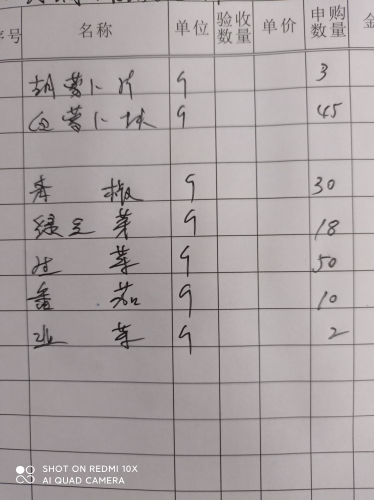 序号 名称 单位 验收数量 单价 申购数量 金
胡萝卜片 9 3
白萝卜球 9 45
青椒 9 30
绿豆芽 9 18
生菜 9 50
番茄 9 10
9 2
SHOT ON REDMI 10X
AI QUAD CAMERA